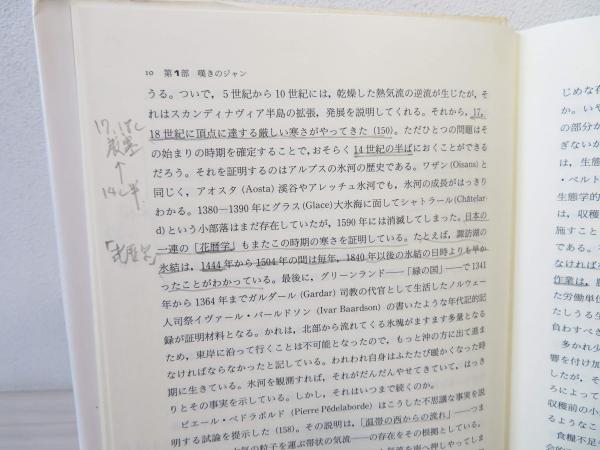 10 第1部 嘆きのジャン
うる。ついで，5世紀から10世紀には，乾燥した熱気流の逆流が生じたが，そ
れはスカンディナヴィア半島の拡張，発展を説明してくれる。それから，17,
18世紀に頂点に達する厳しい寒さがやってきた（150）。ただひとつの問題はそ
の始まりの時期を確定することで，おそらく14世紀の半ばにおくことができる
だろう。それを証明するのはアルプスの氷河の歴史である。ワザン（Oisans）と
同じく，アオスタ（Aosta）渓谷やアレッチュ氷河でも，氷河の成長がはっきり
わかる。1380—1390年にグラス（Glace）大氷海に面してシャトラール（Châtelar-
d）という小部落はまだ存在していたが，1590年には消滅してしまった。日本の
一連の「花暦学」もまたこの時期の寒さを証明している。たとえば，諏訪湖の
氷結は，1444年から1504年の間は毎年，1840年以後の氷結の日時よりも早か
ったことがわかっている。最後に，グリーンランド——「緑の国」——で1341
年から1364年までガルダール（Gardar）司教の代官として生活したノルウェー
人司祭イヴァール・バールドソン（Ivar Baardson）の書いたような年代記的記
録が証明材料となる。かれは，北部から流れてくる氷塊がますます多量となる
ため，東岸に沿って行くことは不可能となったので，もっと沖の方に出て進ま
なければならなかったと記している。われわれ自身はふたたび暖かくなった時
期に生きている。氷河を観測すれば，それがだんだんやせてきていて，はっき
りとその事実を示している。しかし，それはいつまで続くのか。
ピエール・ペドラボルド（Pierre Pédelaborde）はこうした不思議な事実を説
明する試論を提示した（158）。その説明は，「温帯の西からの流れ」——つま
の粒子を運ぶ帯状の気流——の存在をその根拠としている。
17, 18C
14C半
じめな存
か。いや
の部分が
ぎないか
は，生態
・ベルト
生態学的
は，収穫
施すこと
である。
なければ
作業は，
た労働単位
たしうる
負わすべき
多かれ少
響を付け加
したが，そ
ろによって
収穫前の小
なければな
食糧不足